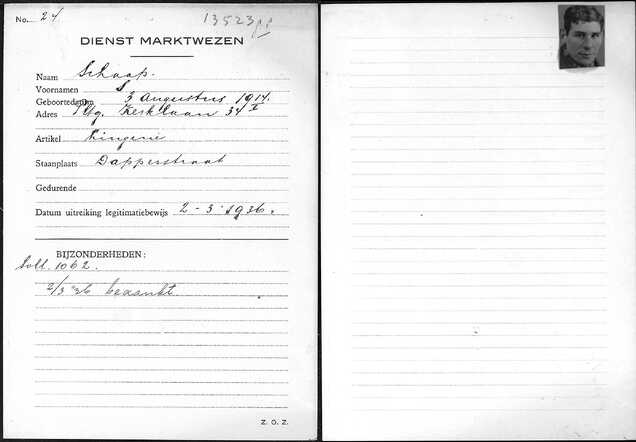 No. 24
13523
DIENST MARKTWEZEN
Naam Schaap.
Voornamen S
Geboortedatum 3 Augustus 1914.
Adres Pltg. Kerklaan 34 I
Artikel Lingerie
Staanplaats Dapperstraat
Gedurende
Datum uitreiking legitimatiebewijs 2-3-1936.
BIJZONDERHEDEN:
Soll. 1062.
2/3 '36 bezankt
Z. O. Z.